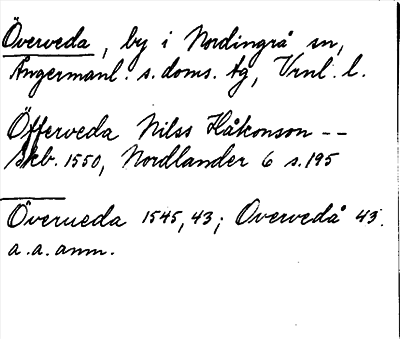 Överveda, by i Nordingrå sn,
Ångermanl. s. doms. tg, Vrnl. l.
Öfferveda Nilss Håkonson --
Skb. 1550, Nordlander 6 s. 195
Överueda 1545, 43; Overvedå 43.
a.a. anm.